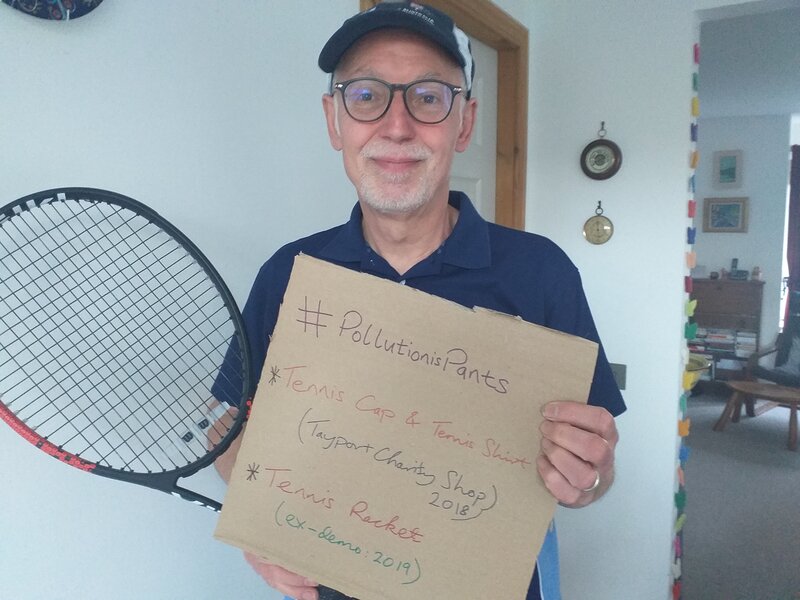 AUSTRALIA
#PollutionisPants
*Tennis Cap & Tennis Shirt
(Tayport Charity Shop)
2018
*Tennis Racket
(ex-demo: 2019)